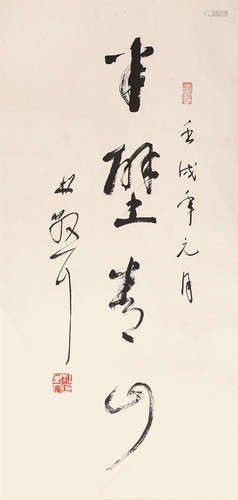 壬戌年元月
半壁青山
林散耳